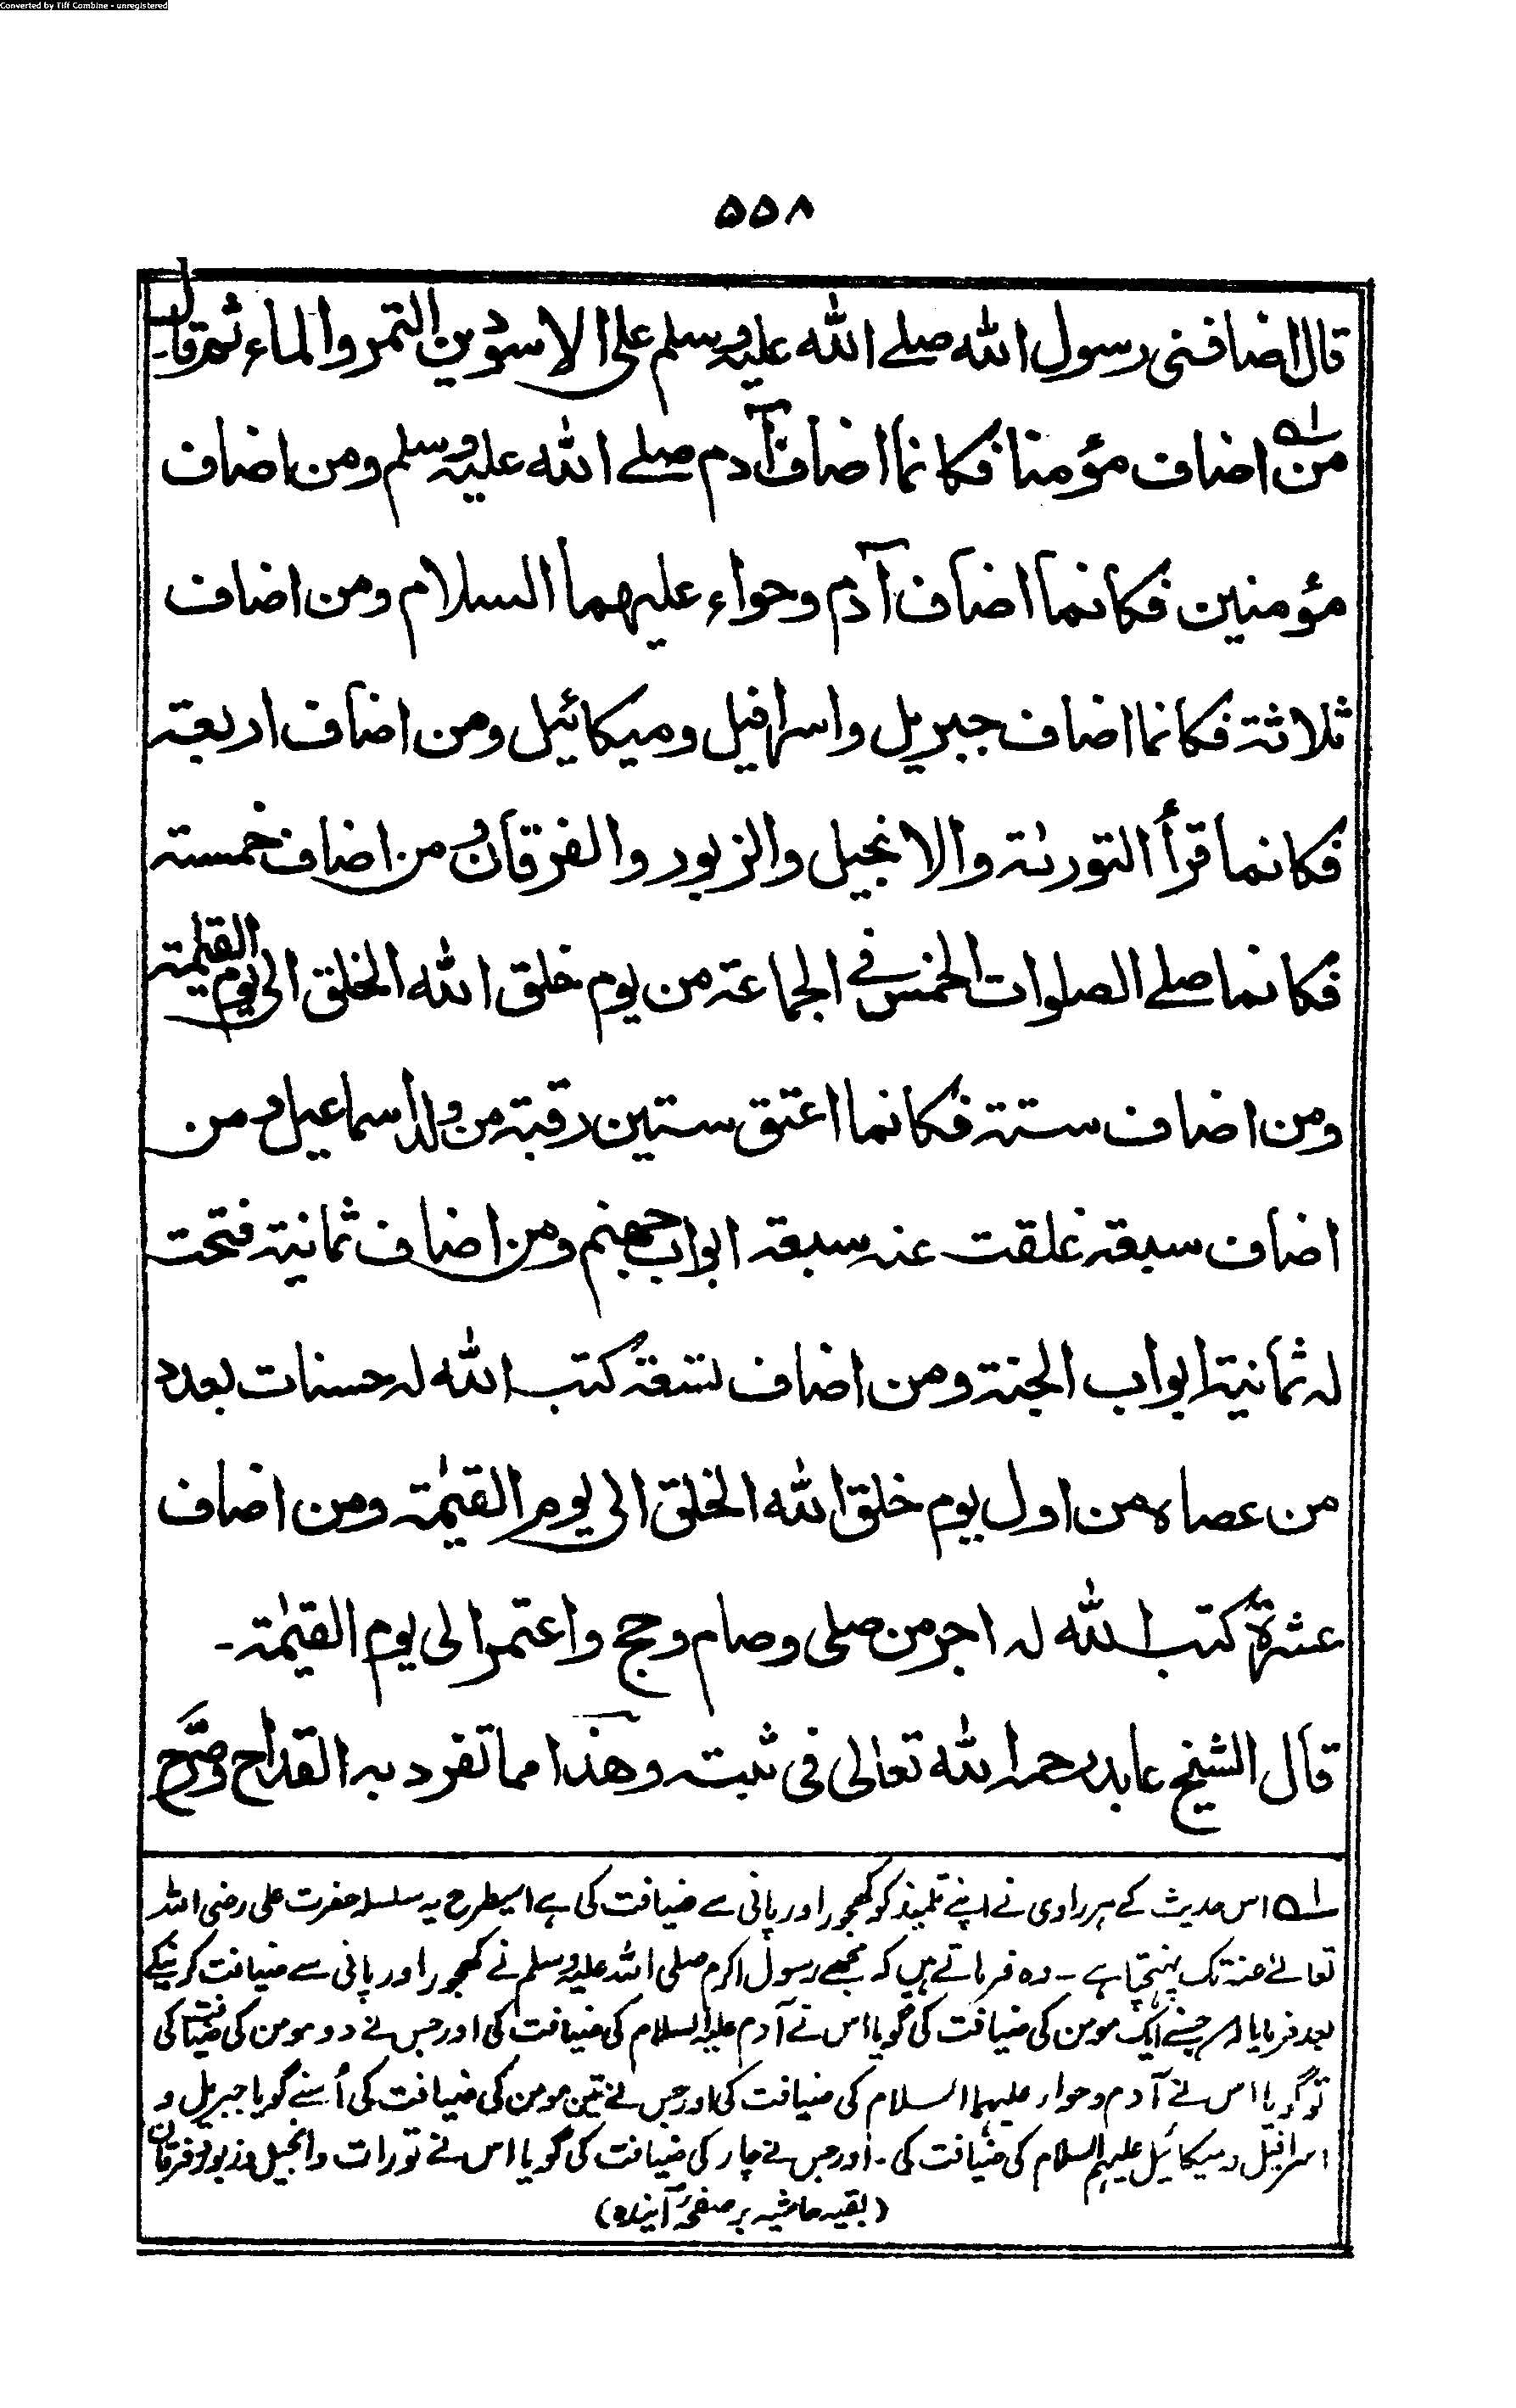 Converted by Tiff Combine - unregistered
۵۵۸
قال اضافنى رسول الله صلے الله عليه وسلم على الاسودين التمر والماء ثم قال
من اضاف مؤمنا فكانما اضاف آدم صلے الله عليه وسلم ومن اضاف
مؤمنين فكانما اضاف آدم وحواء عليهما السلام ومن اضاف
ثلاثة فكانما اضاف جبريل واسرافيل وميكائيل ومن اضاف اربعة
فكانما قرأ التورىٰة والانجيل والزبور والفرقان ومن اضاف خمسة
فكانما صلے الصلوات الخمس فے الجماعة من يوم خلق الله الخلق الى يوم القيٰمة
ومن اضاف ستة فكانما اعتق ستين رقبة من ولد اسماعيل ومن
اضاف سبعة غلقت عنه سبعة ابواب جهنم ومن اضاف ثمانية فتحت
له ثمانية ابواب الجنة ومن اضاف تسعة كتب الله له حسنات بعدد
من عصاه من اول يوم خلق الله الخلق الى يوم القيٰمة ومن اضاف
عشرة كتب الله له اجر من صلى وصام وحج واعتمر الى يوم القيٰمة ـ
قال الشيخ عابد رحمه الله تعالى فى ثبته وهذا مما تفرد به القداح وصَرَّح
لـه اس حدیث کے ہر راوی نے اپنے تلمیذ کو کھجور اور پانی سے ضیافت کی ہے اسیطرح یہ سلسلہ حضرت علی رضی اللہ
تعالےٰ عنہ تک پہنچتا ہے ۔ وہ فرماتے ہیں کہ مجھے رسول اکرم صلی اللہ علیہ وسلم نے کھجور اور پانی سے ضیافت کرنیکے
بعد فرمایا کہ جسنے ایک مومن کی ضیافت کی گویا اس نے آدم علیہ السلام کی ضیافت کی اور جس نے دو مومن کی ضیافت کی
تو گویا اس نے آدم وحواء علیہما السلام کی ضیافت کی اور جس نے تین مومن کی ضیافت کی اُسنے گویا جبریل و
اسرافیل و میکائیل علیہم السلام کی ضیافت کی ۔ اور جس نے چار کی ضیافت کی گویا اس نے تورات وانجیل وزبور وفرقان
(بقیہ حاشیہ بر صفحہ آیندہ)